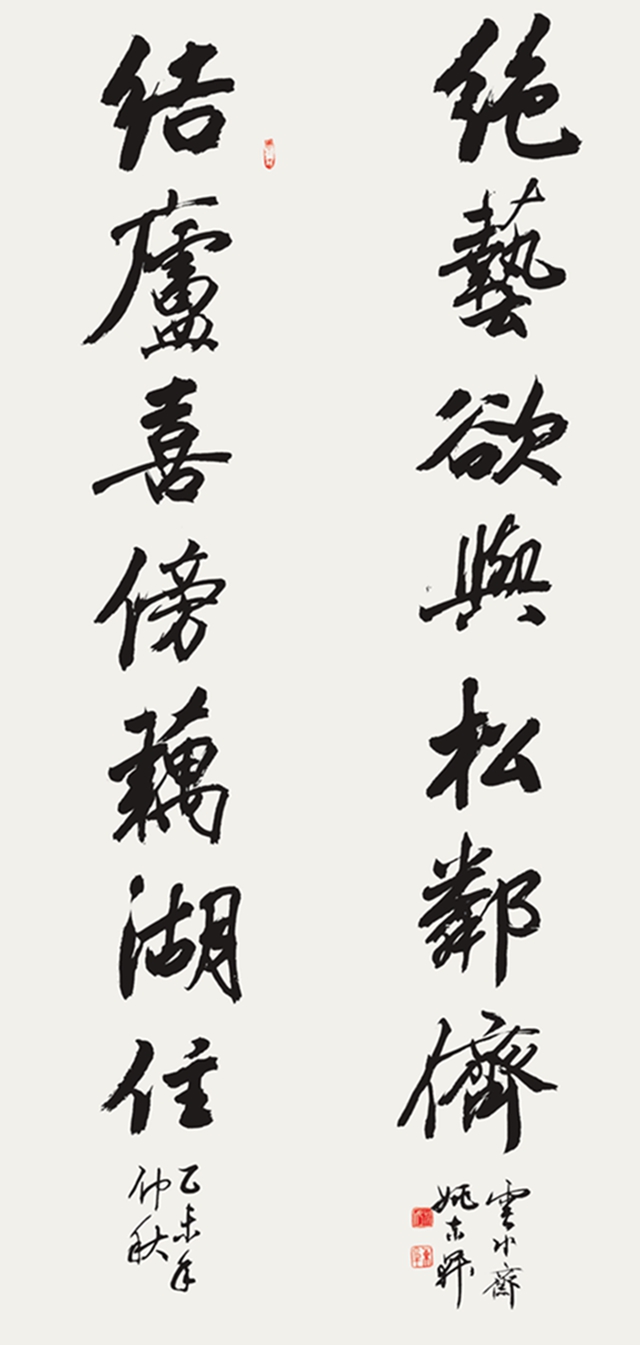 結廬喜傍藕湖住
乙未年
仲秋
絶藝欲與松鄰儕
雲水齋
姚东